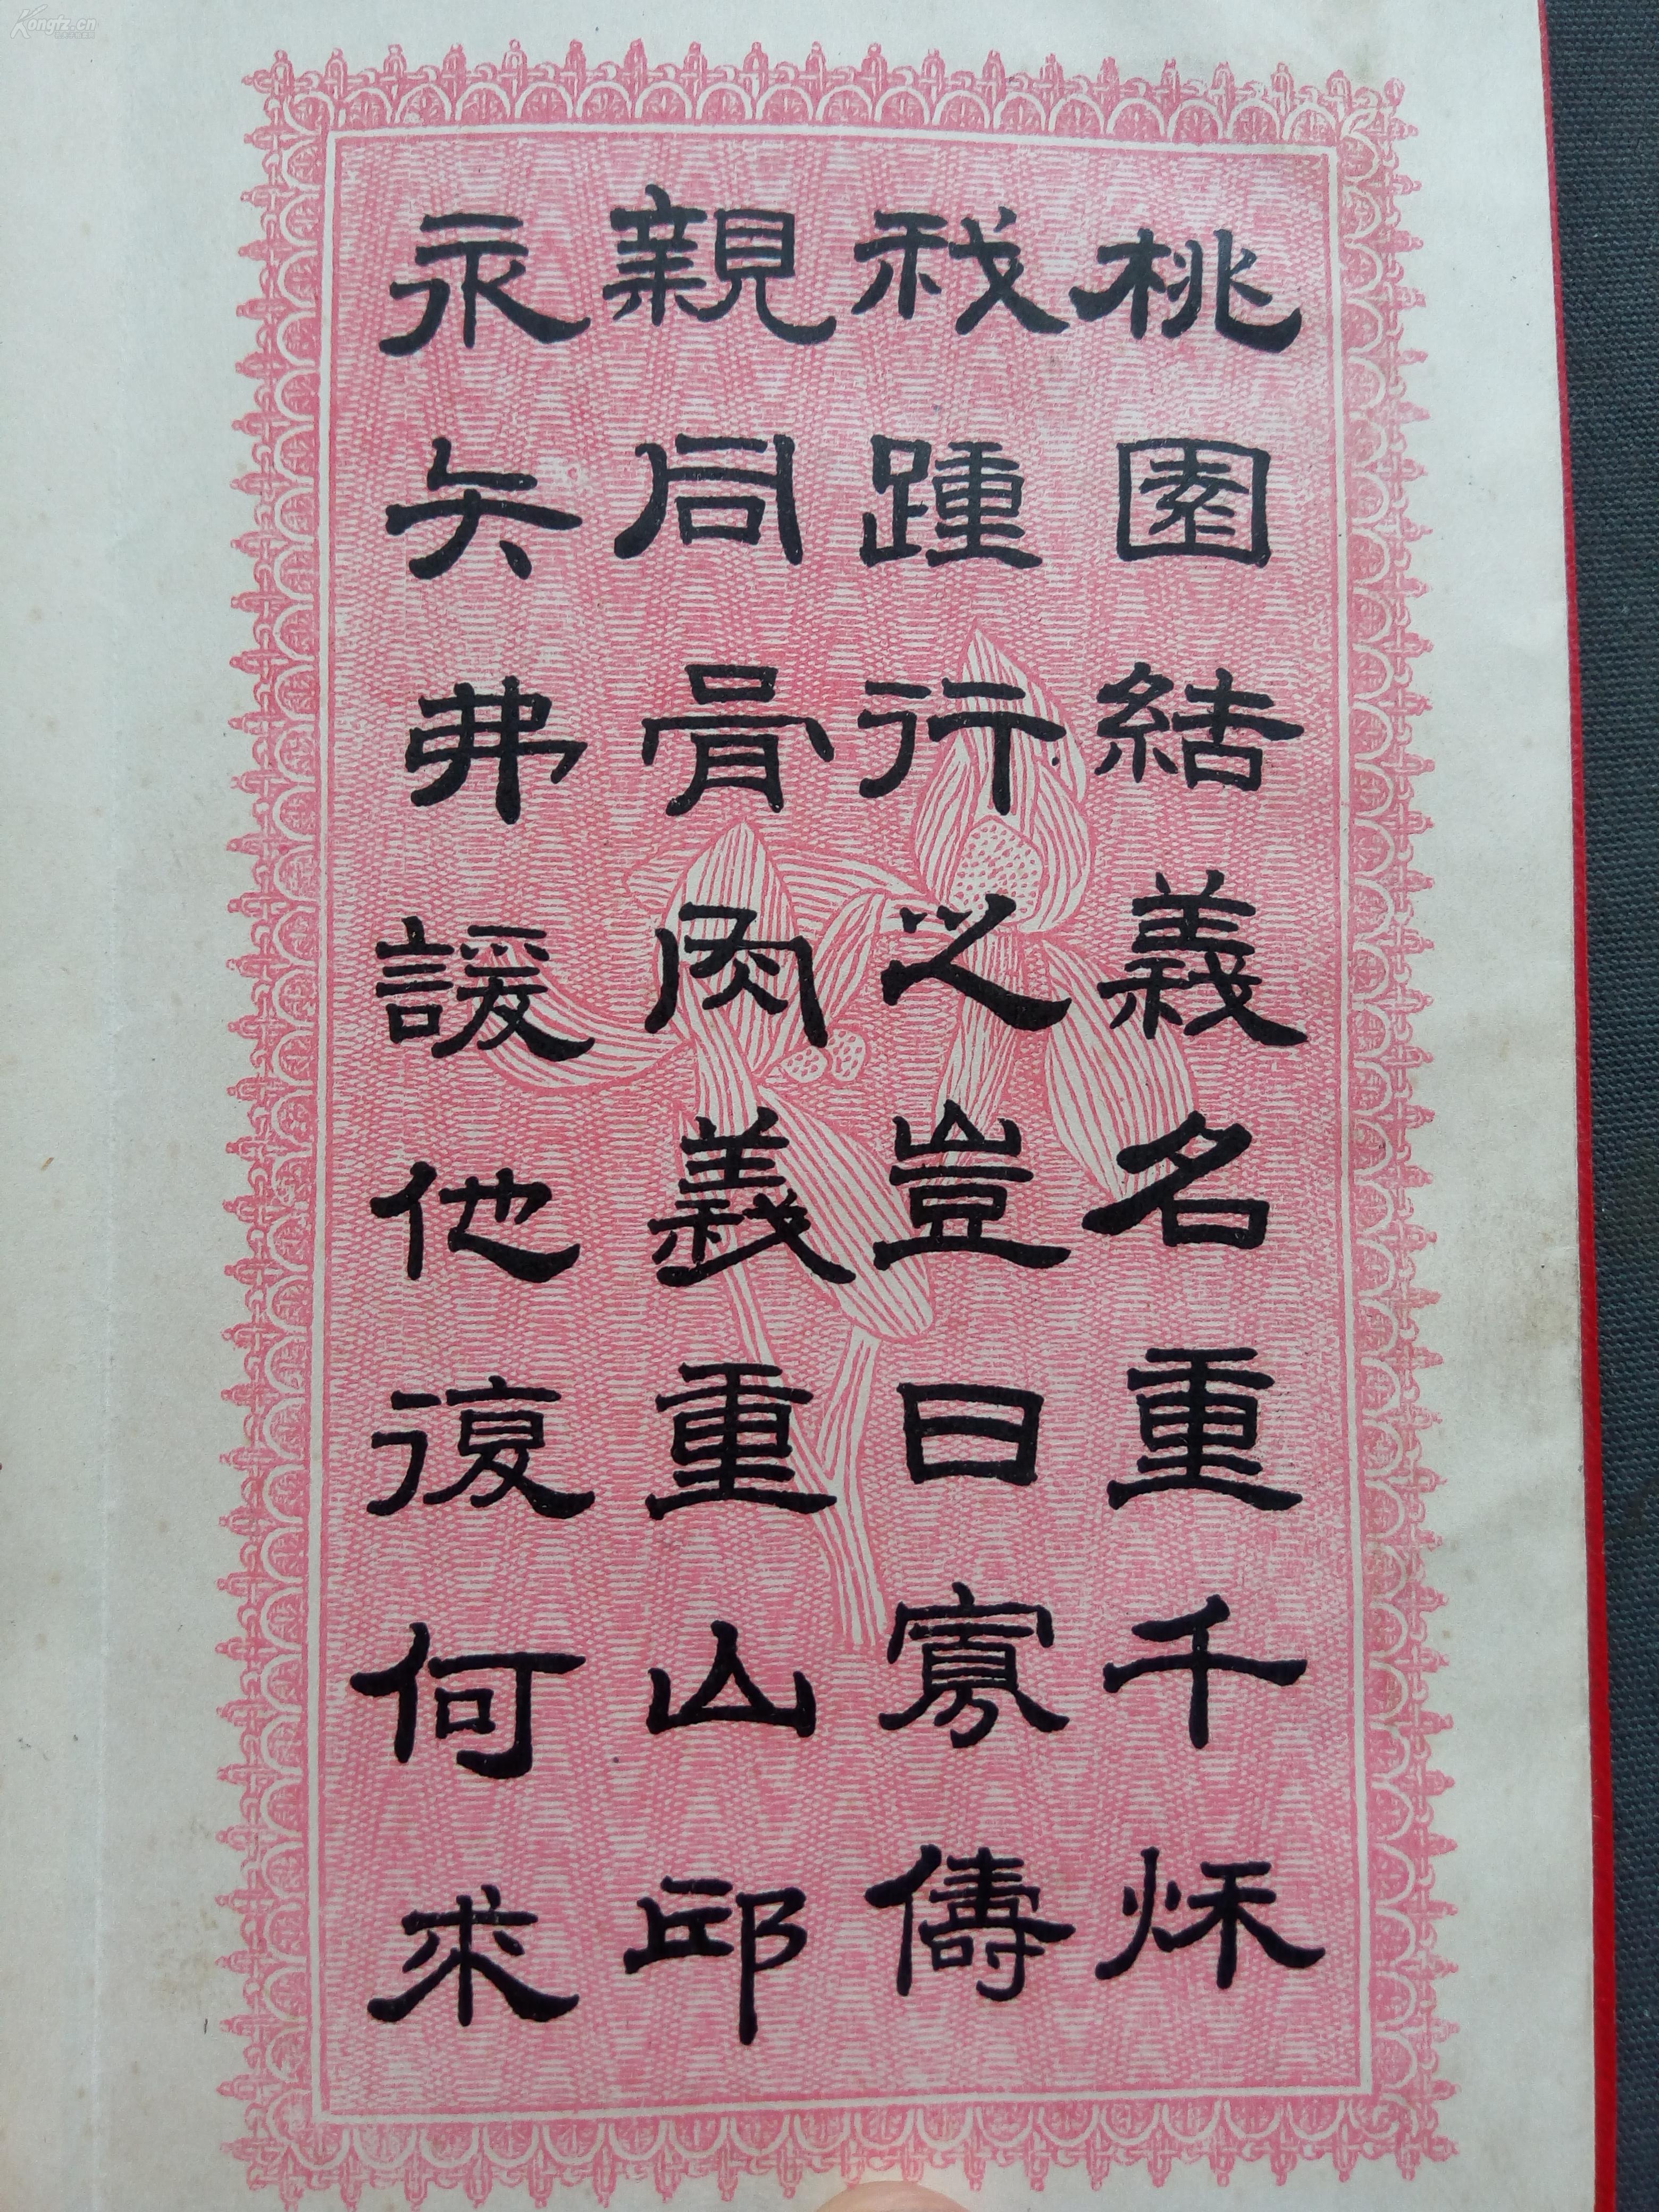 桃園結義名重千秌
我踵行之豈曰寡儔
親同骨肉義重山邱
永矢弗諼他復何求
Kongfz.cn